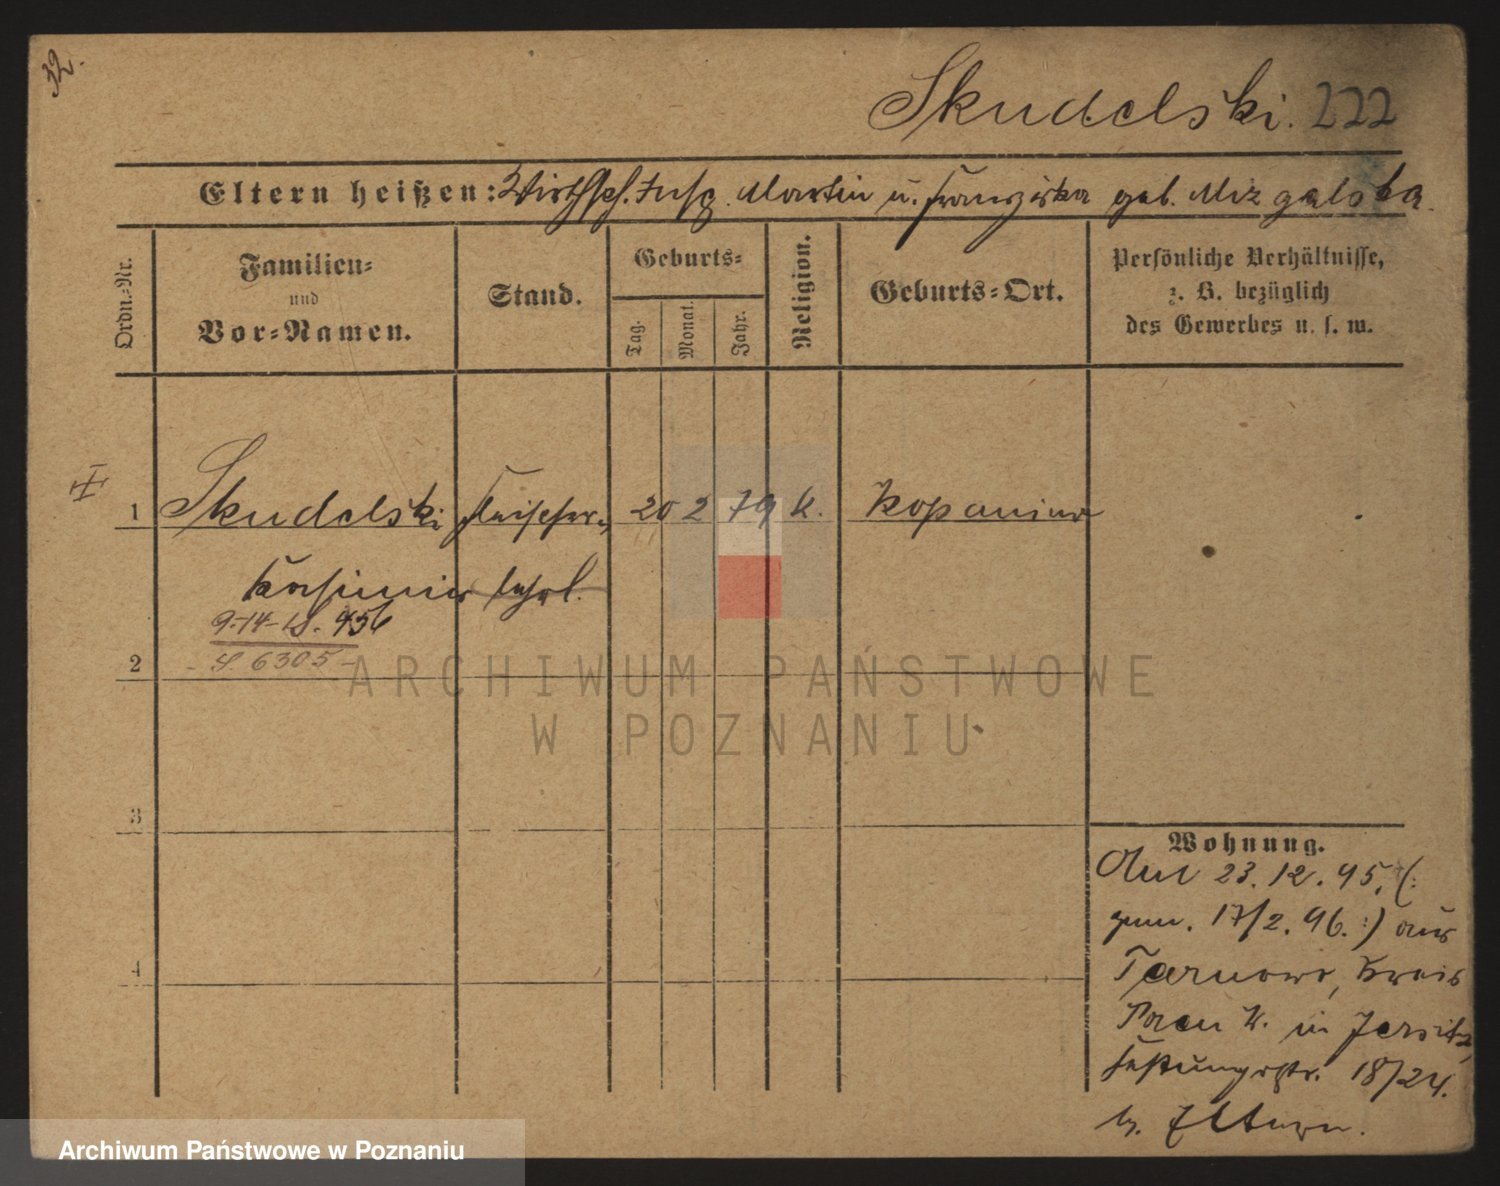 32.
Skudelski. 222
Eltern heißen: Wirthsch. Insp. Martin u. Franziska geb. Mizgalska.
Ordn.-Nr.
Familien-
und
Vor-Namen.
Stand.
Geburts-
Tag.
Monat.
Jahr.
Religion.
Geburts-Ort.
Persönliche Verhältnisse,
z. B. bezüglich
des Gewerbes u. s. w.
1 Skudelski Fleischer- 20 2 79 k. Kopanina
Kasimir lehrl.
9.-14- 456
2 6305
3
4
Wohnung.
Am 23.12.95. (:
gem. 17/2. 96. :) aus
Tarnowo, Kreis
Posen W. in Jersitz,
Festungsstr. 18/24.
b. Eltern.
ARCHIWUM PAŃSTWOWE
W POZNANIU
Archiwum Państwowe w Poznaniu